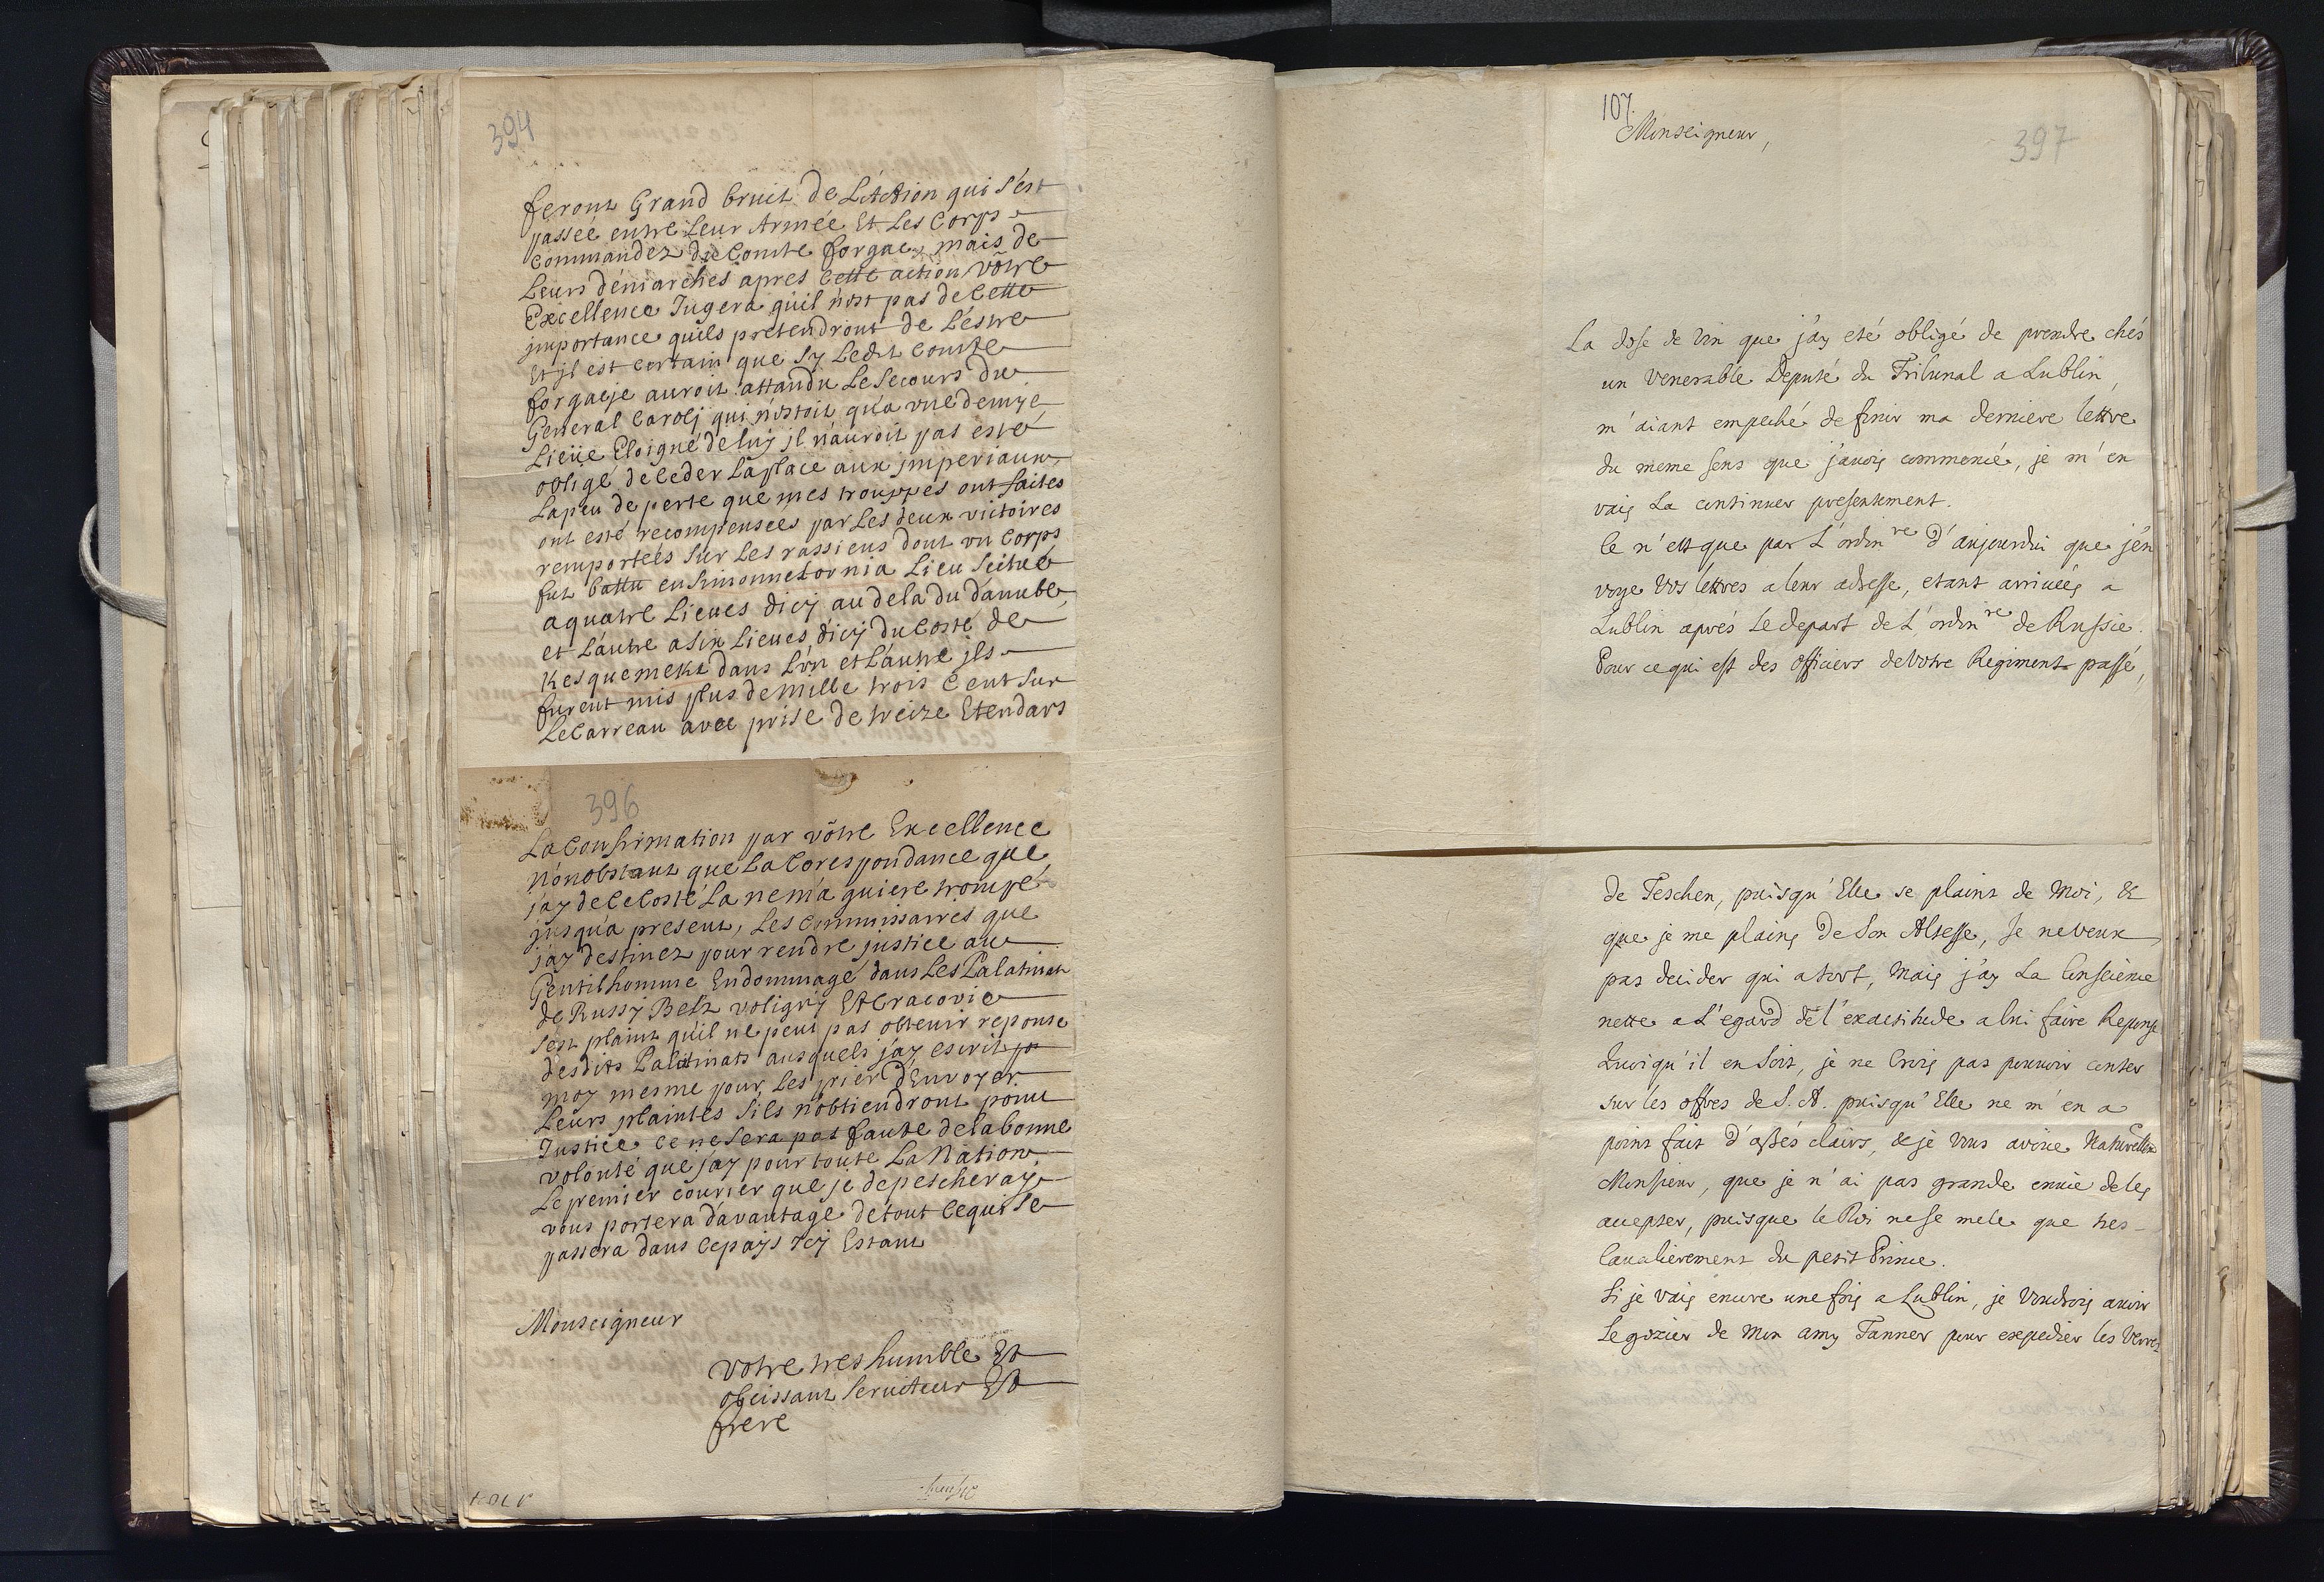 394
feront Grand bruit de L'Action qui s'est
passée entre Leur Armée Et Les Corps
Commandez du Comte forgac, mais de
Leurs démarches apres Cette action vôtre
Excellence Jugera qu'il n'est pas de Cette
jmportance qu'ils pretendront de L'estre
Et jl est certain que sy Ledit Comte
forgacje auroit attandu Le Secours du
General Carolj qui n'estoit qu'a vne demye
Lieüe Eloigné de luy jl n'auroit pas esté
obligé de Ceder La place aux jmperiaux,
La peu de perte que mes trouppes ont faites
ont esté recompensées par Les deux victoires
remportées sur Les rassiens dont vn Corps
fut battu en Simonnetornia Lieu Scitué
a quatre Lieues d'icy au dela du danube,
et L'autre a Six Lieues d'icy du Costé de
Kesquemekt dans L'vn et L'autre jls
furent mis plus de Mille trois Cent sur
Le Carreau avec prise de treize Etendars
396
La Confirmation par vôtre Excellence
Nonobstant que La Corespondance que
j'ay de Ce Costé La ne m'a guiere trompé
jusqu'a present, Les Commissaires que
j'ay destinez pour rendre justice au
Gentilhomme Endommagé dans Les Palatinats
de Russy Belz voligny Et Cracovie
s'est plaint qu'il ne peut pas obtenir reponse
desdits Palatinats ausquels j'ay escrit
moy mesme pour Les prier d'Envoyer
Leurs plaintes S'ils n'obtiendront point
Justice ce ne sera pas faute de la bonne
volonté que j'ay pour toute La Nation.
Le premier courier que je depescheray
vous portera d'avantage de tout Ce qui se
passera dans Ce pays Icy Estant
Monseigneur
Votre tres humble Et
obeissant Serviteur Et
frere
107.
Monseigneur,
397
La dose de vin que j'ay eté obligé de prendre chés
un venerable Deputé du Tribunal a Lublin,
m'aiant empeché de finir ma derniere lettre
du meme sens que j'avois commencé, je m'en
vais La continuer presentement.
Ce n'est que par L'ordinre d'aujourdui que j'en
voye Vos lettres a leur adresse, etant arrivées a
Lublin aprés Le depart de L'ordinre de Russie.
Pour ce qui est des officiers de Votre Regiment passé,
de Teschen, puisqu'Elle se plaint de Moi, &
que je me plains de Son Altesse, Je ne veux
pas decider qui a tort, Mais j'ay La Conscience
nette a L'egard de l'exactitude a lui faire Reponse
Quoiqu'il en Soit, je ne Crois pas pouvoir conter
sur les offres de S. A. puisqu'Elle ne m'en a
point fait d'assés clairs, & je vous avoue
Monsieur, que je n'ai pas grande envie de les
accepter, puisque le Roi ne se mele que tres-
Cavalierement du petit Prince.
Si je vais encore une fois a Lublin, je voudrois avoir
Le gozier de Mon amy Tanner pour expedier les Verres